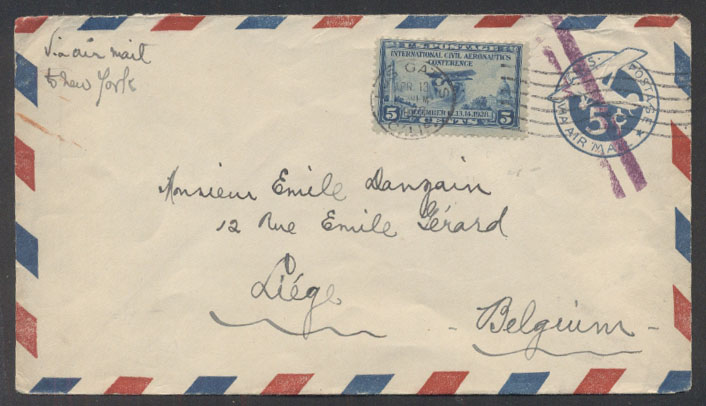 Via air mail
to New York
U.S. POSTAGE
INTERNATIONAL CIVIL AERONAUTICS
CONFERENCE
5 CENTS 5
DECEMBER 12,13,14, 1928
GA
APR 13
U.S. POSTAGE
5¢
VIA AIR MAIL
Monsieur Emile Danzain
12 Rue Emile Gérard
Liége
- Belgium -